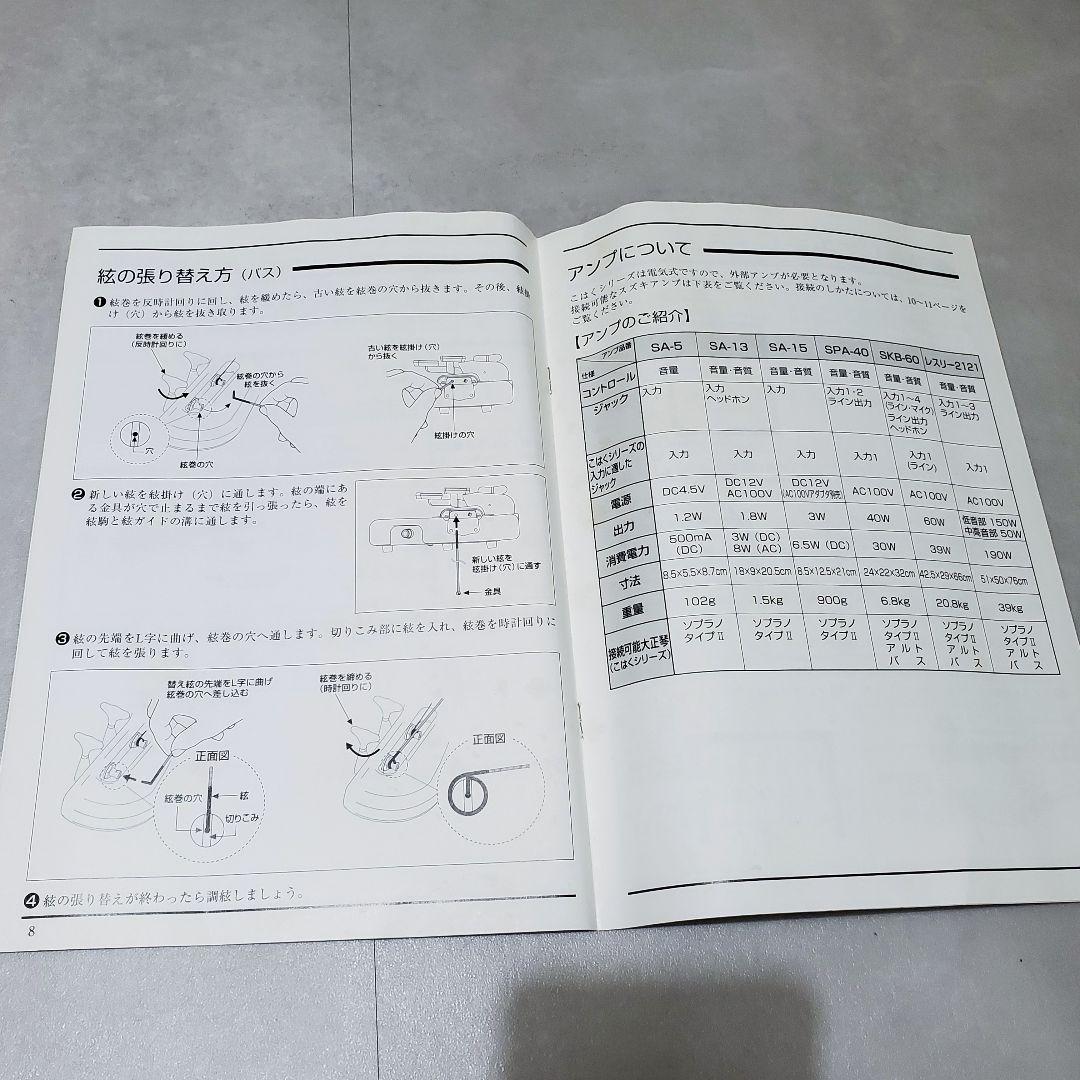 絃の張り替え方（バス）
❶絃巻を反時計回りに回し、絃を緩めたら、古い絃を絃巻の穴から抜きます。その後、絃掛
け（穴）から絃を抜き取ります。
絃巻を緩める
（反時計回りに）
絃巻の穴から
絃を抜く
穴
絃巻の穴
古い絃を絃掛け（穴）
から抜く
絃掛けの穴
❷新しい絃を絃掛け（穴）に通します。絃の端にあ
る金具が穴で止まるまで絃を引っ張ったら、絃を
絃駒と絃ガイドの溝に通します。
新しい絃を
絃掛け（穴）に通す
金具
❸絃の先端をL字に曲げ、絃巻の穴へ通します。切りこみ部に絃を入れ、絃巻を時計回りに
回して絃を張ります。
替え絃の先端をL字に曲げ
絃巻の穴へ差し込む
正面図
絃巻の穴
絃
切りこみ
絃巻を締める
（時計回りに）
正面図
❹絃の張り替えが終わったら調絃しましょう。
8
アンプについて
こはくシリーズは電気式ですので、外部アンプが必要となります。
接続可能なスズキアンプは下表をご覧ください。接続のしかたについては、10〜11ページを
ご覧ください。
【アンプのご紹介】
アンプ品番 SA-5 SA-13 SA-15 SPA-40 SKB-60 レスリー2121
仕様
コントロール 音量 音量・音質 音量・音質 音量・音質 音量・音質 音量・音質
ジャック 入力 入力 入力 入力1・2 入力1〜4 入力1〜3
ヘッドホン ライン出力 （ライン・マイク） ライン出力
ライン出力
ヘッドホン
こはくシリーズの
入力に適した 入力 入力 入力 入力1 入力1 入力1
ジャック （ライン）
電源 DC4.5V DC12V DC12V AC100V AC100V AC100V
AC100V （AC100Vアダプタ別売）
出力 1.2W 1.8W 3W 40W 60W 低音部 150W
中高音部 50W
消費電力 500mA 3W（DC） 6.5W（DC） 30W 39W 190W
（DC） 8W（AC）
寸法 8.5×5.5×8.7cm 18×9×20.5cm 8.5×12.5×21cm 24×22×32cm 42.5×29×66cm 51×50×76cm
重量 102g 1.5kg 900g 6.8kg 20.8kg 39kg
接続可能大正琴 ソプラノ ソプラノ ソプラノ ソプラノ ソプラノ ソプラノ
（こはくシリーズ） タイプⅡ タイプⅡ タイプⅡ タイプⅡ タイプⅡ タイプⅡ
アルト アルト アルト
バス バス バス